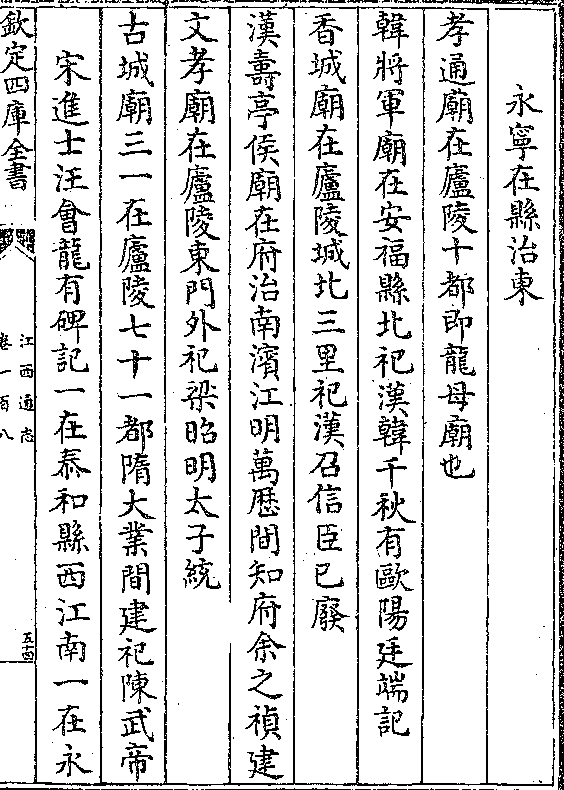 永寧在縣治東
孝通廟在廬陵十都即龍母廟也
韓將軍廟在安福縣北祀漢韓千秋有歐陽廷端記
香城廟在廬陵城北三里祀漢召信臣已廢
漢壽亭侯廟在府治南濱江明萬厯間知府余之禎建
文孝廟在廬陵東門外祀梁昭明太子統
古城廟三一在廬陵七十一都隋大業間建祀陳武帝
宋進士汪會龍有碑記一在泰和縣西江南一在永
欽定四庫全書
江西通志
卷一百八
五十四